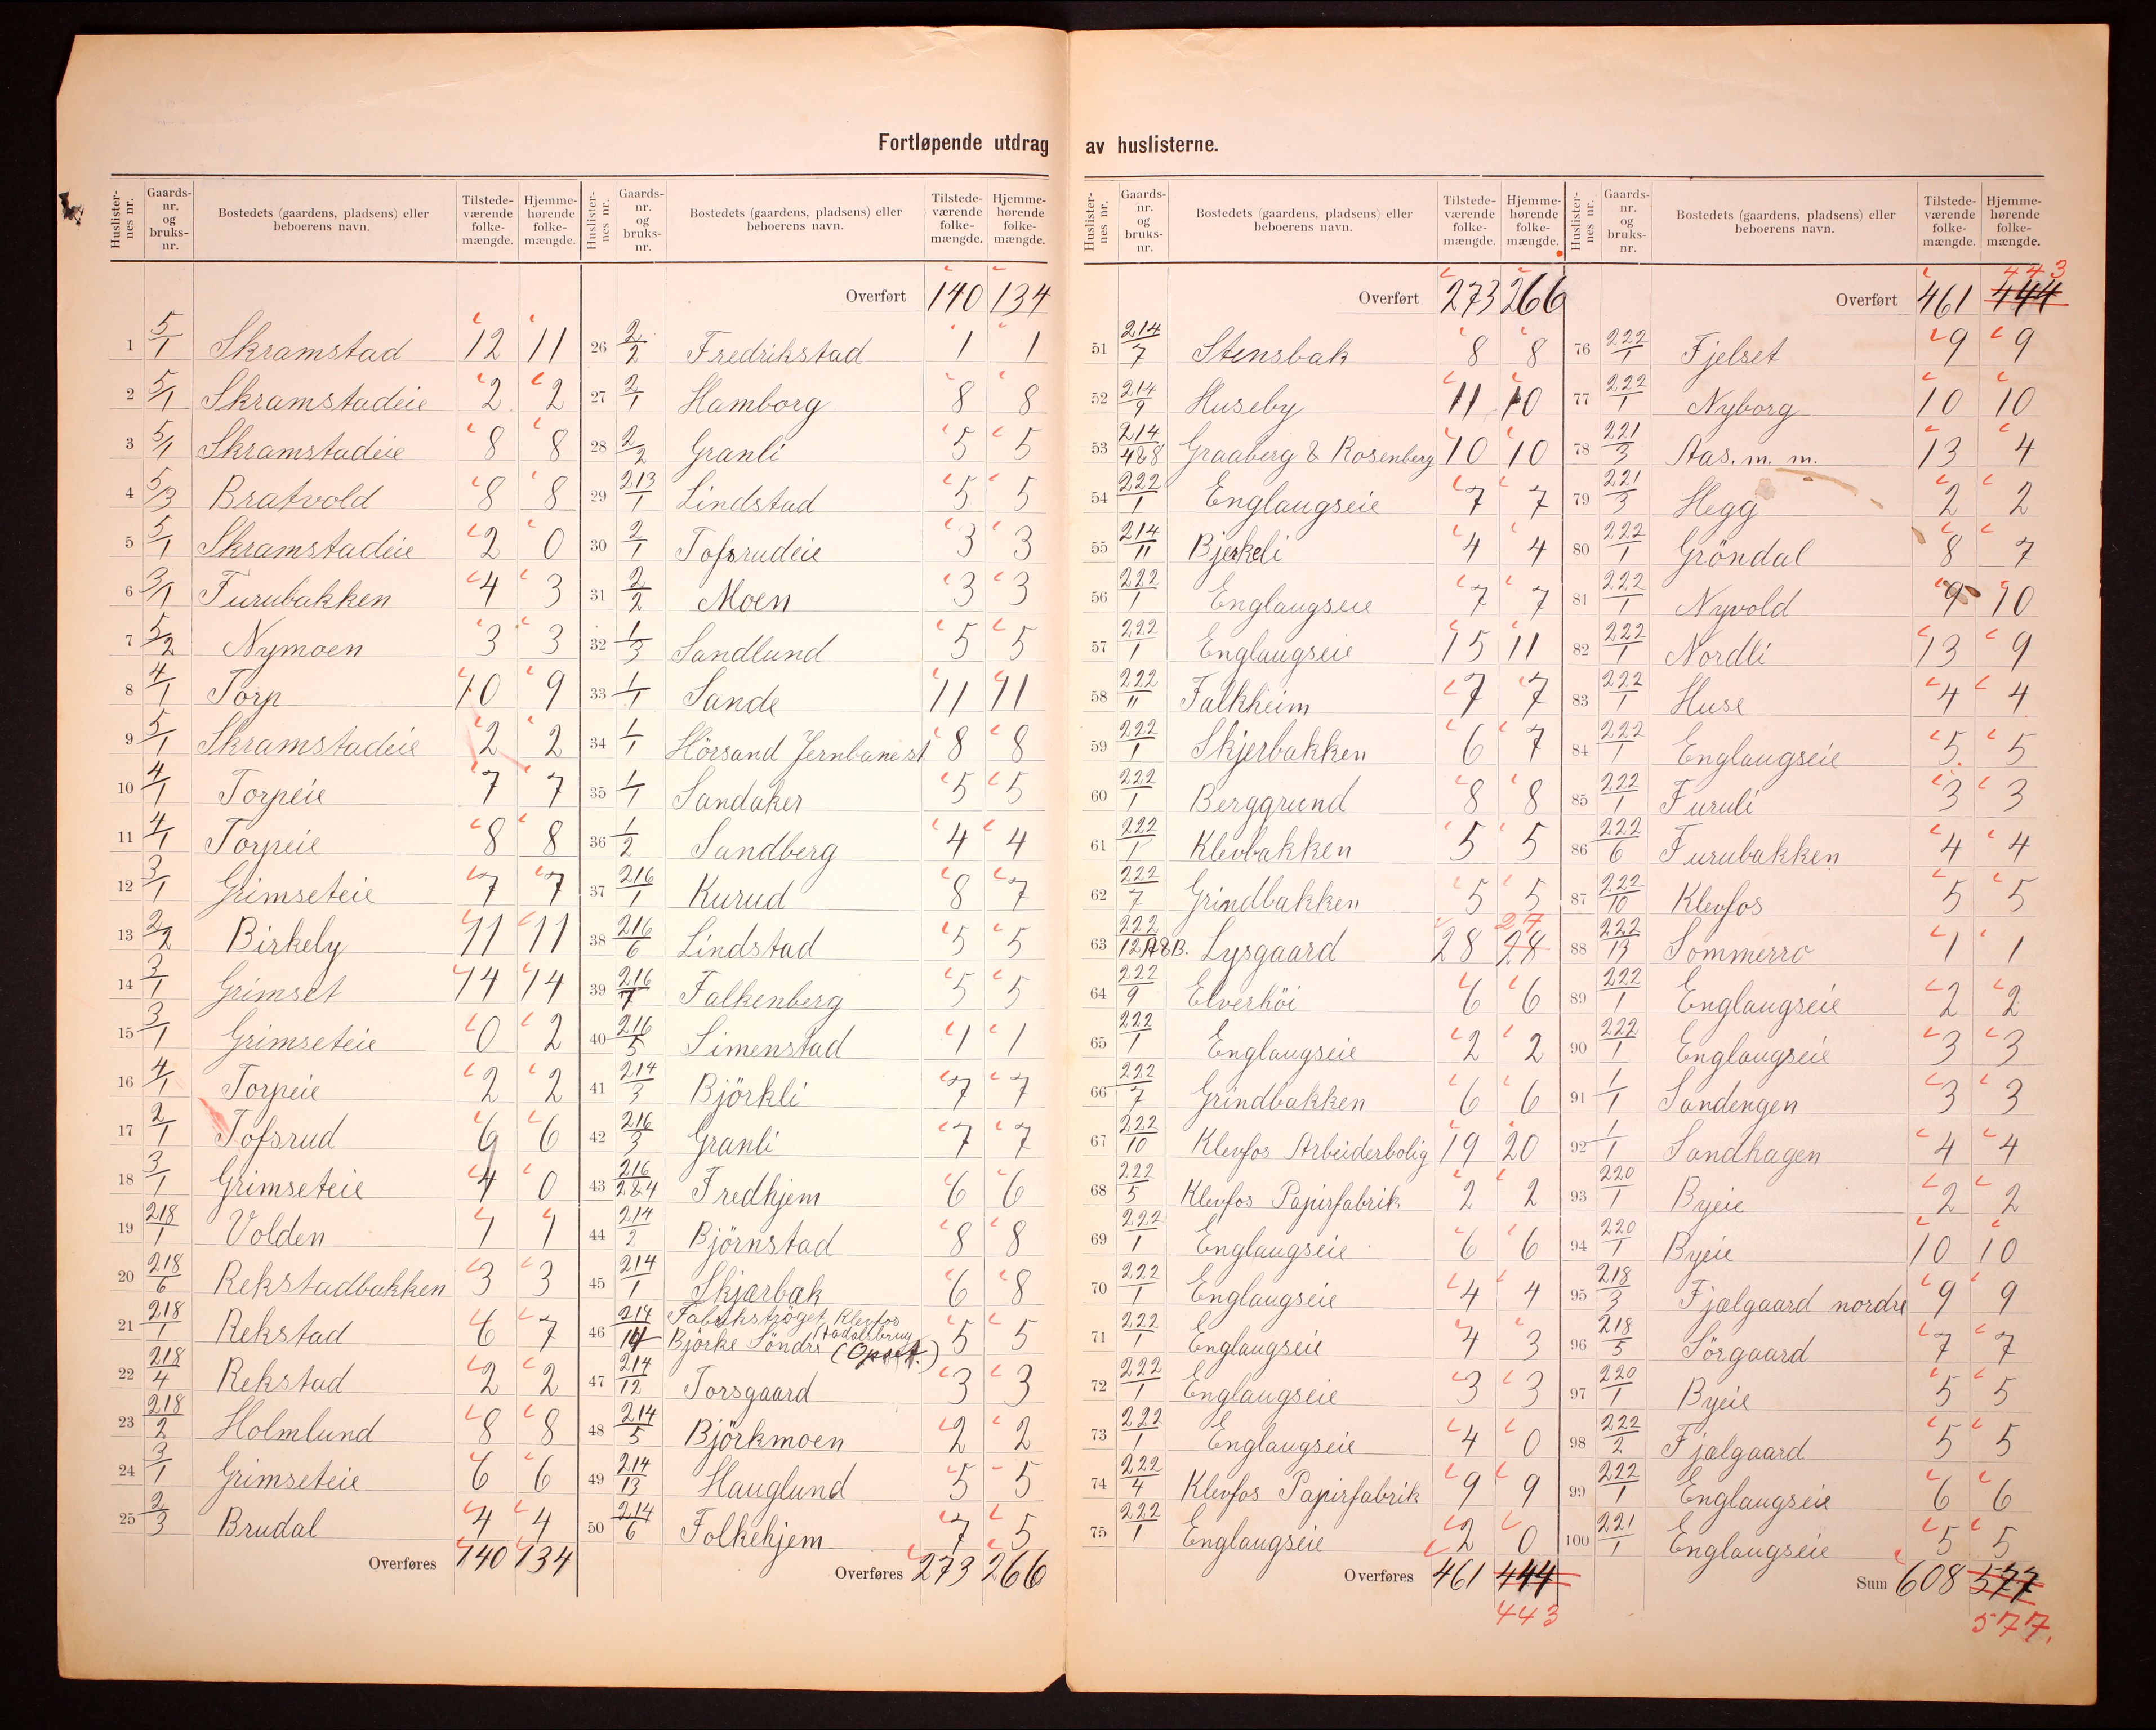 Fortløpende utdrag av huslisterne.
Huslisternes nr. Gaardsnr. og bruksnr. Bostedets (gaardens, pladsens) eller beboerens navn. Tilstedeværende folkemængde. Hjemmehørende folkemængde.
1 5/1 Skramstad 12 11
2 5/1 Skramstadeie 2 2
3 5/1 Skramstadeie 8 8
4 5/3 Bratvold 8 8
5 5/1 Skramstadeie 2 0
6 3/1 Furubakken 4 3
7 5/2 Nymoen 3 3
8 4/1 Torp 10 9
9 5/1 Skramstadeie 2 2
10 4/1 Torpeie 7 7
11 4/1 Torpeie 8 8
12 3/1 Grimseteie 7 7
13 2/2 Birkely 11 11
14 3/1 Grimset 14 14
15 3/1 Grimseteie 0 2
16 4/1 Torpeie 2 2
17 2/1 Tofsrud 6 6
18 3/1 Grimseteie 4 0
19 218/1 Volden 1 1
20 218/6 Rekstadbakken 3 3
21 218/1 Rekstad 6 7
22 218/4 Rekstad 2 2
23 218/2 Holmlund 8 8
24 3/1 Grimseteie 6 6
25 2/3 Brudal 4 4
Overføres 140 134
Huslisternes nr. Gaardsnr. og bruksnr. Bostedets (gaardens, pladsens) eller beboerens navn. Tilstedeværende folkemængde. Hjemmehørende folkemængde.
Overført 140 134
26 2/2 Fredrikstad 1 1
27 2/1 Hamborg 8 8
28 2/2 Granli 5 5
29 213/1 Lindstad 5 5
30 2/1 Tofsrudeie 3 3
31 2/2 Moen 3 3
32 1/3 Sandlund 5 5
33 1/1 Sande 11 11
34 1/1 Hörsand Jernbanest. 8 8
35 1/1 Sandaker 5 5
36 1/2 Sandberg 4 4
37 216/1 Kurud 8 7
38 216/6 Lindstad 5 5
39 216/7 Falkenberg 5 5
40 216/5 Simenstad 1 1
41 214/3 Björkli 7 7
42 216/3 Granli 7 7
43 216/2&4 Fredhjem 6 6
44 214/2 Björnstad 8 8
45 214/1 Skjærbæk 6 8
Fabrikströget, Klevfos
46 214/14 Björke Söndre (Opset.) 5 5
47 214/12 Torsgaard 3 3
48 214/5 Björkmoen 2 2
49 214/13 Hauglund 5 5
50 214/6 Folkehjem 7 5
Overføres 273 266
Huslisternes nr. Gaardsnr. og bruksnr. Bostedets (gaardens, pladsens) eller beboerens navn. Tilstedeværende folkemængde. Hjemmehørende folkemængde.
Overført 273 266
51 214/7 Stensbak 8 8
52 214/9 Huseby 11 10
53 214/4&8 Graaberg & Rosenberg 10 10
54 222/1 Englaugseie 7 7
55 214/11 Bjerkeli 4 4
56 222/1 Englaugseie 7 7
57 222/1 Englaugseie 15 11
58 222/11 Falkheim 7 7
59 222/1 Skjerbakken 6 7
60 222/1 Berggrund 8 8
61 222/1 Klevbakken 5 5
62 222/7 Grindbakken 5 5
63 222/12A&B. Lysgaard 28 28 27
64 222/9 Elverhöi 6 6
65 222/1 Englaugseie 2 2
66 222/7 Grindbakken 6 6
67 222/10 Klevfos Arbeiderbolig 19 20
68 222/5 Klevfos Papirfabrik 2 2
69 222/1 Englaugseie 6 6
70 222/1 Englaugseie 4 4
71 222/1 Englaugseie 4 3
72 222/1 Englaugseie 3 3
73 222/1 Englaugseie 4 0
74 222/4 Klevfos Papirfabrik 9 9
75 222/1 Englaugseie 2 0
Overføres 461 444
443
Huslisternes nr. Gaardsnr. og bruksnr. Bostedets (gaardens, pladsens) eller beboerens navn. Tilstedeværende folkemængde. Hjemmehørende folkemængde.
443
Overført 461 444
76 222/1 Fjelset 9 9
77 222/1 Nyborg 10 10
78 221/3 Aas. m. m. 13 4
79 221/3 Hegg 2 2
80 222/1 Gröndal 8 7
81 222/1 Nyvold 9 10
82 222/1 Nordli 13 9
83 222/1 Huse 4 4
84 222/1 Englaugseie 5. 5
85 222/1 Furuli 3 3
86 222/6 Furubakken 4 4
87 222/10 Klevfos 5 5
88 222/13 Sommerro 1 1
89 222/1 Englaugseie 2 2
90 222/1 Englaugseie 3 3
91 1/1 Sandengen 3 3
92 1/1 Sandhagen 4 4
93 220/1 Byeie 2 2
94 220/1 Byeie 10 10
95 218/3 Fjælgaard nordre 9 9
96 218/5 Sörgaard 7 7
97 220/1 Byeie 5 5
98 222/2 Fjælgaard 5 5
99 222/1 Englaugseie 6 6
100 221/1 Englaugseie 5 5
Sum 608 577
577.